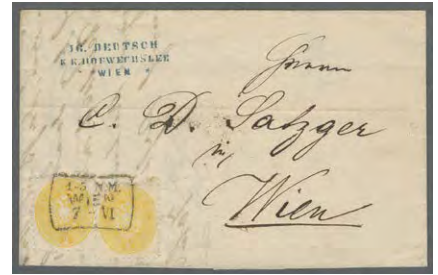 IG. DEUTSCH
K.K. HOFWECHSLER
WIEN
Herrn
C. D. Satzger
in
Wien
1-5 N.M.
WIEN
7 VI